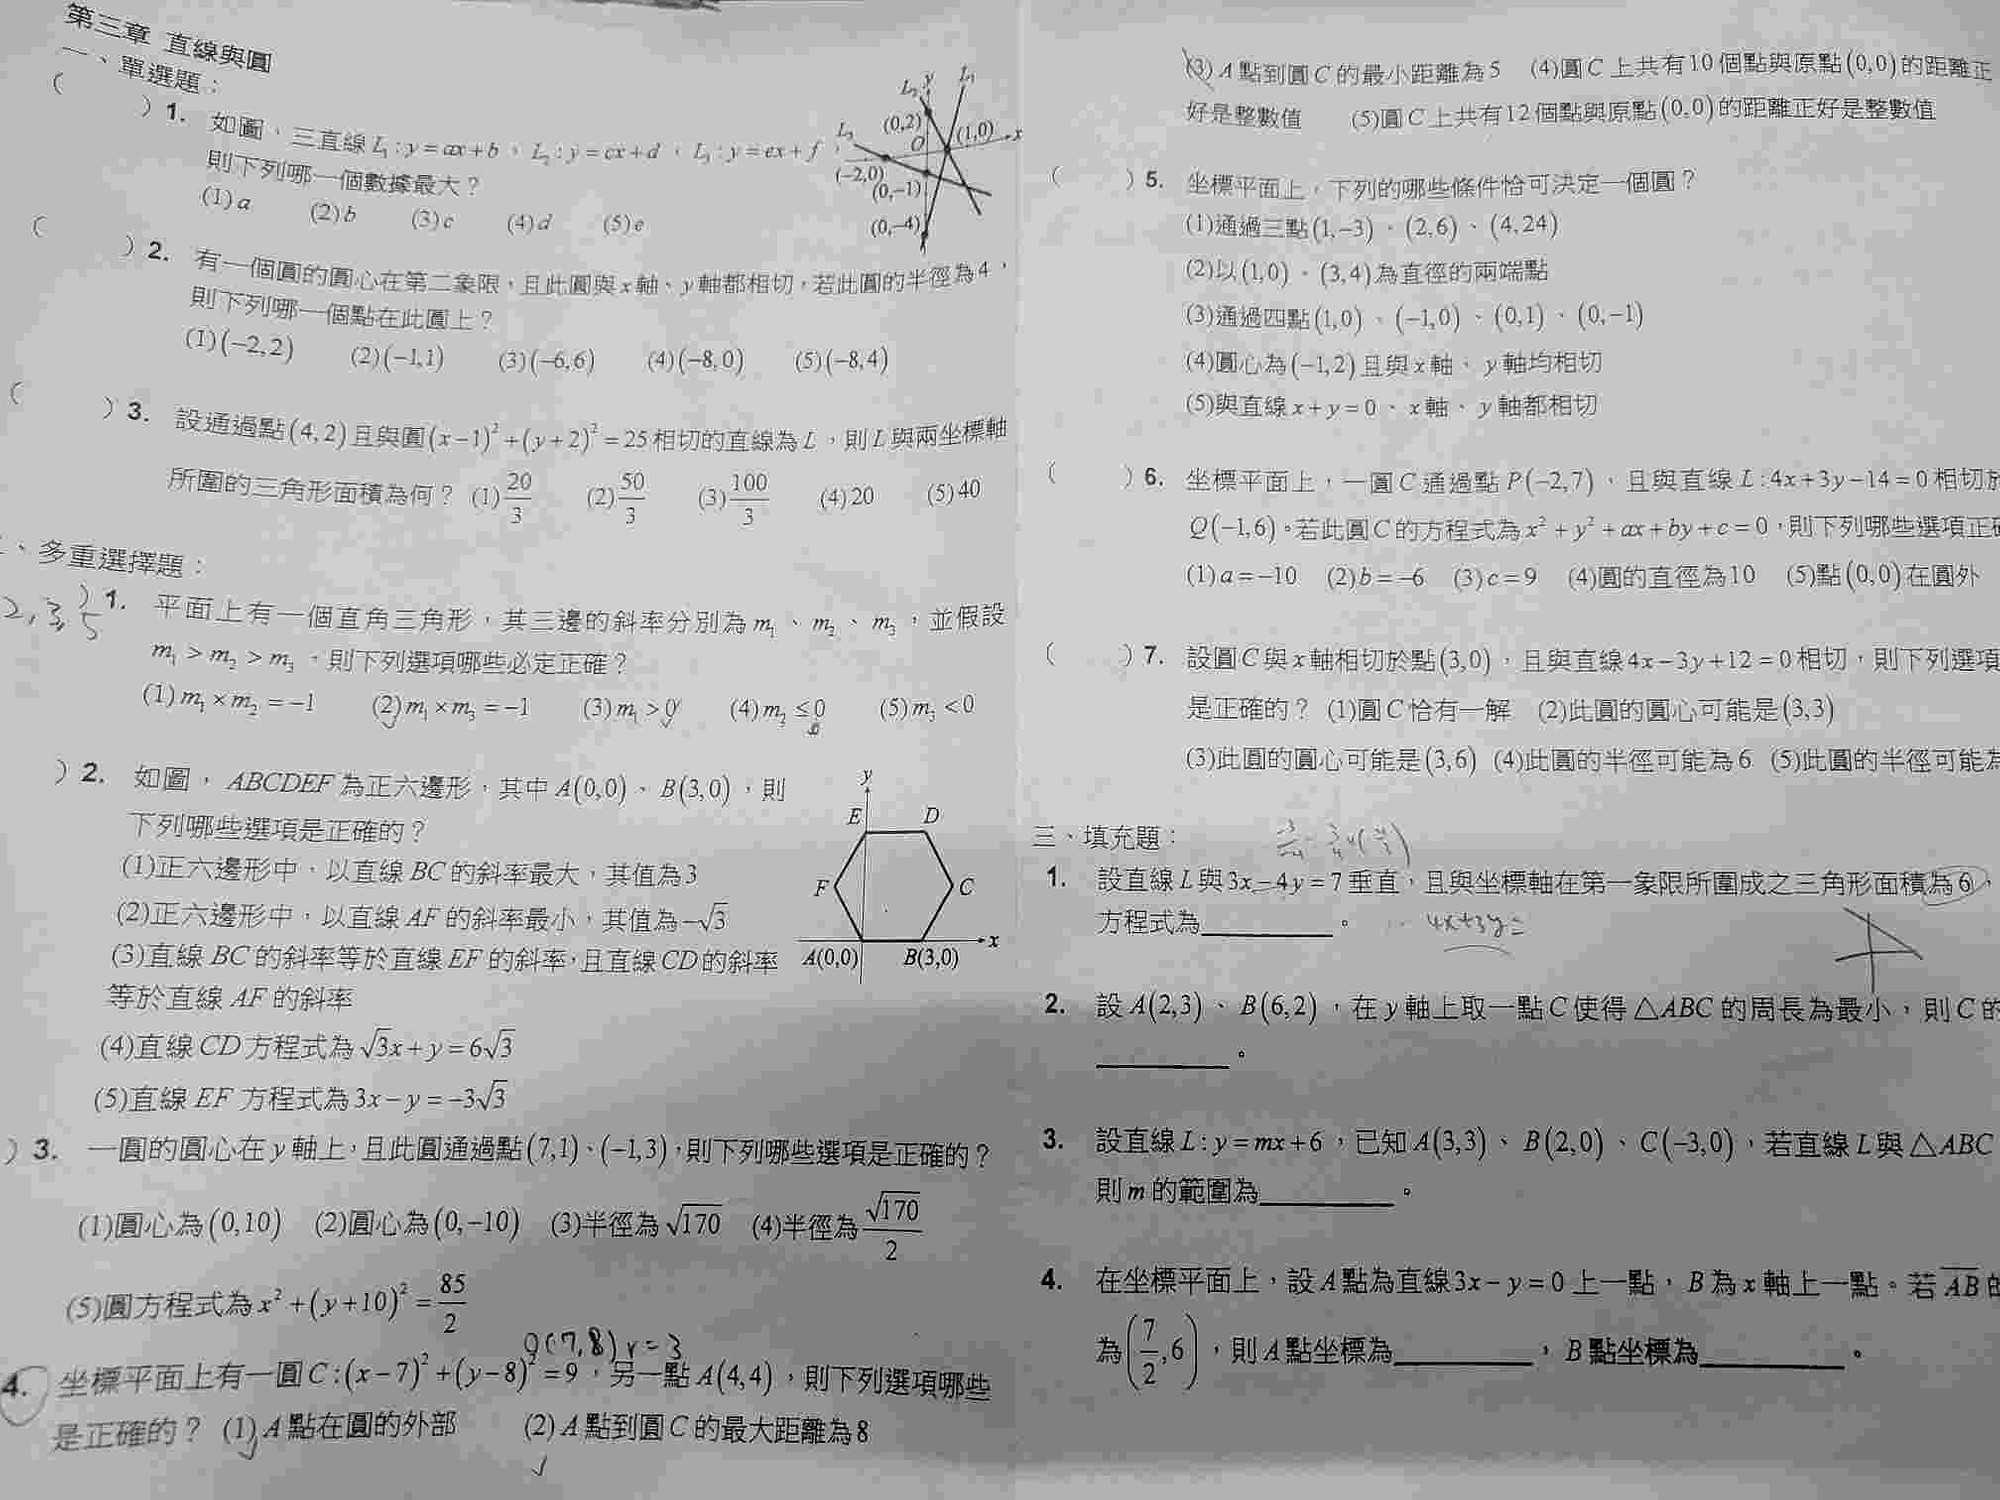 第三章 直線與圓
一、單選題：
( ) 1. 如圖、三直線 L₁ : y = ax + b 、 L₂ : y = cx + d 、 L₃ : y = ex + f ，
則下列哪一個數據最大？
(1) a (2) b (3) c (4) d (5) e
L₂ y L₁
L₃ (0,2) (1,0) x
O
(−2,0)
(0,−1)
(0,−4)
( ) 2. 有一個圓的圓心在第二象限，且此圓與 x 軸、y 軸都相切，若此圓的半徑為 4，
則下列哪一個點在此圓上？
(1) (−2,2) (2) (−1,1) (3) (−6,6) (4) (−8,0) (5) (−8,4)
( ) 3. 設通過點 (4,2) 且與圓 (x−1)² + (y+2)² = 25 相切的直線為 L，則 L 與兩坐標軸
所圍的三角形面積為何？ (1) 20/3 (2) 50/3 (3) 100/3 (4) 20 (5) 40
、多重選擇題：
2, 3, 5 ) 1. 平面上有一個直角三角形，其三邊的斜率分別為 m₁ 、 m₂ 、 m₃ ，並假設
m₁ > m₂ > m₃ ，則下列選項哪些必定正確？
(1) m₁ × m₂ = −1 (2) m₁ × m₃ = −1 (3) m₁ > 0 (4) m₂ ≤ 0 (5) m₃ < 0
) 2. 如圖， ABCDEF 為正六邊形，其中 A(0,0) 、 B(3,0) ，則
下列哪些選項是正確的？
(1)正六邊形中，以直線 BC 的斜率最大，其值為 3
(2)正六邊形中，以直線 AF 的斜率最小，其值為 −√3
(3)直線 BC 的斜率等於直線 EF 的斜率，且直線 CD 的斜率
等於直線 AF 的斜率
(4)直線 CD 方程式為 √3x + y = 6√3
(5)直線 EF 方程式為 3x − y = −3√3
y
E D
F C
A(0,0) B(3,0) x
) 3. 一圓的圓心在 y 軸上，且此圓通過點 (7,1)、(−1,3)，則下列哪些選項是正確的？
(1)圓心為 (0,10) (2)圓心為 (0,−10) (3)半徑為 √170 (4)半徑為 √170/2
(5)圓方程式為 x² + (y+10)² = 85/2
O(7,8) r=3
4. 坐標平面上有一圓 C : (x−7)² + (y−8)² = 9 ，另一點 A(4,4) ，則下列選項哪些
是正確的？ (1) A 點在圓的外部 (2) A 點到圓 C 的最大距離為 8
(3) A 點到圓 C 的最小距離為 5 (4)圓 C 上共有 10 個點與原點 (0,0) 的距離正
好是整數值 (5)圓 C 上共有 12 個點與原點 (0,0) 的距離正好是整數值
( ) 5. 坐標平面上，下列的哪些條件恰可決定一個圓？
(1)通過三點 (1,−3) 、 (2,6) 、 (4,24)
(2)以 (1,0) 、 (3,4) 為直徑的兩端點
(3)通過四點 (1,0) 、 (−1,0) 、 (0,1) 、 (0,−1)
(4)圓心為 (−1,2) 且與 x 軸、 y 軸均相切
(5)與直線 x + y = 0 、 x 軸、 y 軸都相切
( ) 6. 坐標平面上，一圓 C 通過點 P(−2,7) ，且與直線 L : 4x + 3y − 14 = 0 相切於
Q(−1,6)。若此圓 C 的方程式為 x² + y² + ax + by + c = 0，則下列哪些選項正確
(1) a = −10 (2) b = −6 (3) c = 9 (4)圓的直徑為 10 (5)點 (0,0) 在圓外
( ) 7. 設圓 C 與 x 軸相切於點 (3,0) ，且與直線 4x − 3y + 12 = 0 相切，則下列選項
是正確的？ (1)圓 C 恰有一解 (2)此圓的圓心可能是 (3,3)
(3)此圓的圓心可能是 (3,6) (4)此圓的半徑可能為 6 (5)此圓的半徑可能為
三、填充題：
1. 設直線 L 與 3x − 4y = 7 垂直，且與坐標軸在第一象限所圍成之三角形面積為 6，
方程式為＿＿＿＿。 4x+3y=
2. 設 A(2,3) 、 B(6,2) ，在 y 軸上取一點 C 使得 △ABC 的周長為最小，則 C 的
＿＿＿＿。
3. 設直線 L : y = mx + 6 ，已知 A(3,3) 、 B(2,0) 、 C(−3,0) ，若直線 L 與 △ABC
則 m 的範圍為＿＿＿＿。
4. 在坐標平面上，設 A 點為直線 3x − y = 0 上一點， B 為 x 軸上一點。若 AB 的
為 (7/2, 6) ，則 A 點坐標為＿＿＿＿， B 點坐標為＿＿＿＿。